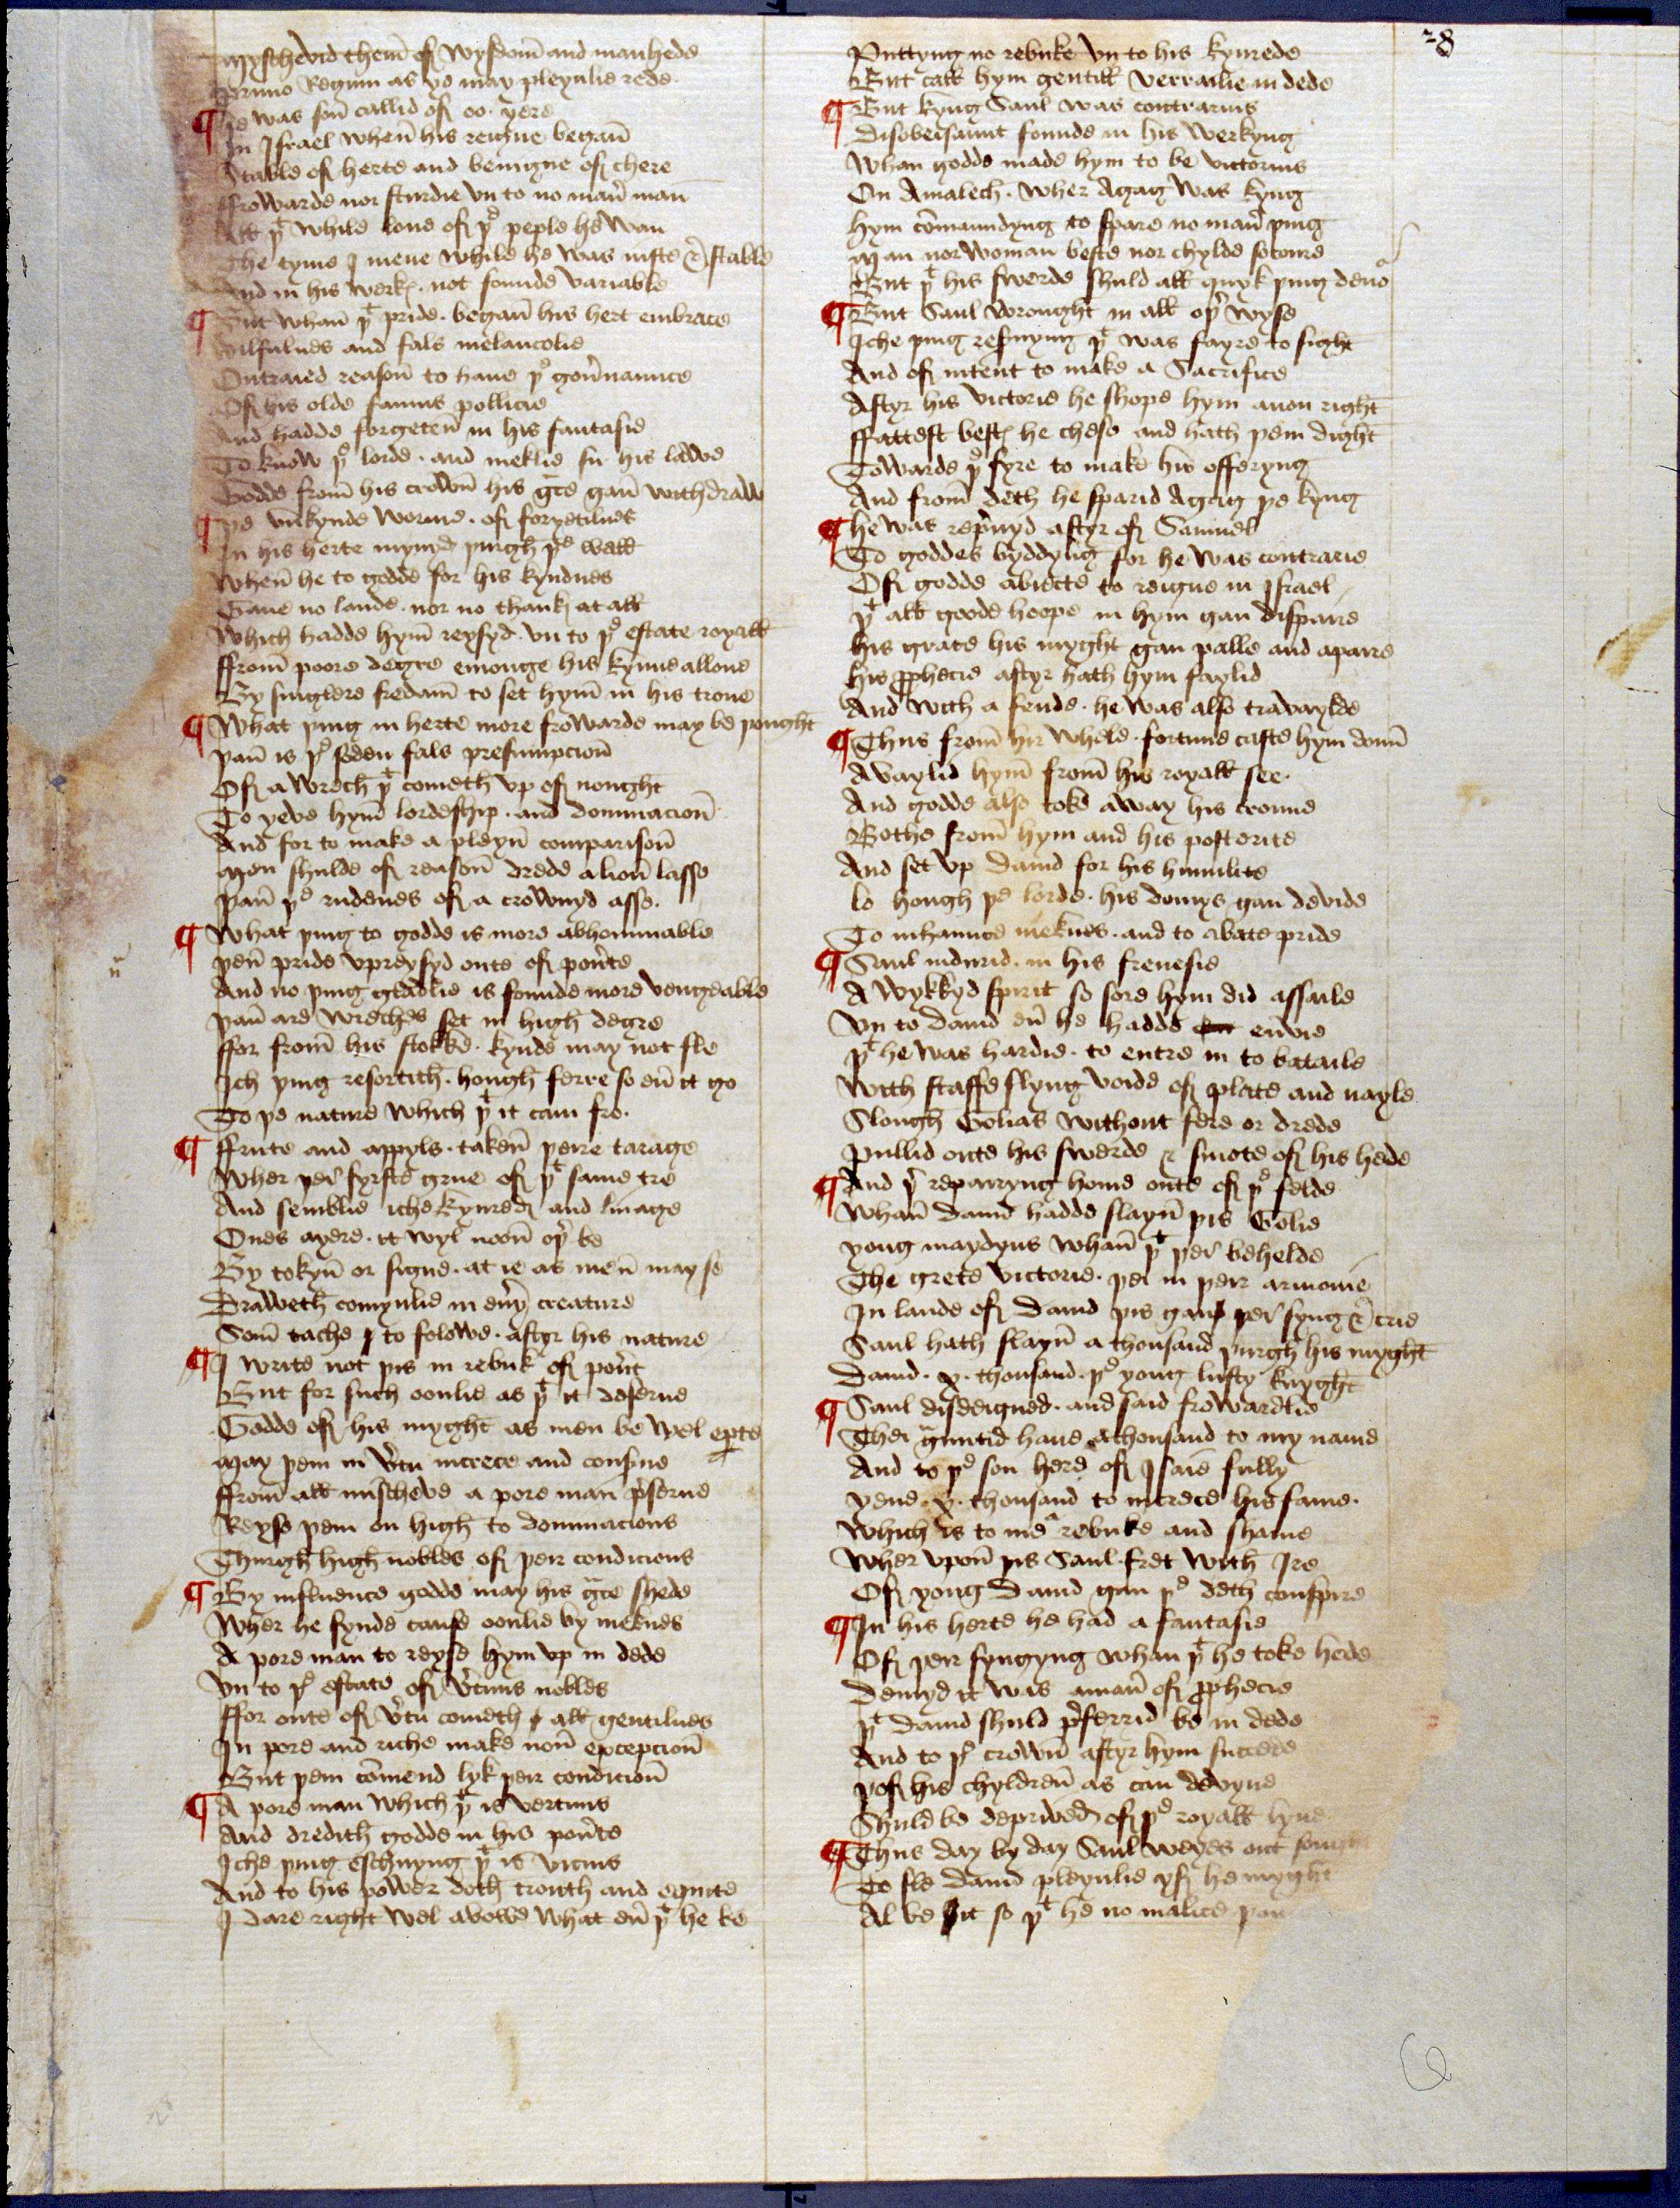 myschevid them̄ of wysdom̄ and manhede
primo Regum as ye may pleynlie rede
¶ He was son̄ callid of oo yere
In Israel when̄ his reigne began̄
Stable of herte and benigne of chere
ffrowarde nor sturdie vn to no man̄ man
All þᵗ while loue of þᵉ peple he wan
The tyme I mene while he was iuste & stable
And in his werkꝭ. not founde variable
¶ But whan̄ þᵗ pride. began̄ his hert embrace
Wilfulnes and fals melancolie
Outraied reason̄ to haue þᵉ gou̅naunce
Of his olde famus pollicie
And hadde forgeten̄ in his fantasie
To know þᵉ lorde. and meklie su his lawe
Godde from̄ his crown̄ his gce gan̄ withdraw
¶ þe vnkynde worme. of foryetilnes
In his herte mynyd þurgh þᵉ wall
When̄ he to godde for his kyndnes
Gaue no laude. nor no thankꝭ at all
Which hadde hym̄ reysyd. vn to þᵉ estate royall
ffrom̄ poore degre emonge his kynne allone
By singlere fredam̄ to set hym̄ in his trone
¶ What þing in herte more frowarde may be þought
þan̄ is þᵉ soden fals presumpcion̄
Of a wrech þᵗ cometh vp of nought
To yeve hym̄ lordeship. and dominacion̄
And for to make a pleyn̄ comparison̄
Men shulde of reason̄ drede a lion̄ lasse
þan̄ þᵉ rudenes of a crownyd asse.
¶ What þing to godde is more abhominable
þen̄ pride vpreysyd oute of pou̅te
And no þing gladlie is founde more vengeable
þan̄ are wreches set in high degre
ffor from̄ his stokke. kynde may not fle
Ich þing resortith. hough ferre so eu̅ it go
To þe nature which þᵗ it cam fro.
¶ ffrute and appyls. taken̄ þeire tarage
Wher þei fyrste grue of þᵗ same tre
And semblie iche kynredꝭ and linage
Ones ayere. it wyl noon̄ oþ̅ be
By tokyn̄ or signe. at ie as men̄ may se
Draweth comynlie in eu̅y creature
Som̄ tache to folowe. aftyr his nature
¶ I write not þis in rebuk of pou̅t
But for such oonlie as þᵗ it deserue
Godde of his myght as men be wel exꝑte
May þem in v̅tu increce and conserue
ffrom̄ all mischeve a pore man p̅serue
Reyse þem on high to dominacions
Thurgh high nobles of þeir condicions
¶ By influence godde may his gce shede
Wher he fynde cause oonlie by meknes
A pore man to reyse hym vp in dede
Vn to þᵉ estate of v̅tuus nobles
ffor oute of v̅tu cometh all gentilnes
In pore and riche make non̄ excepcion̄
But þem com̄end lyk þeir condicion̄
¶ A pore man which þᵗ is vertuus
And dredith godde in his pou̅te
Iche þing eschuyng þᵗ is vicius
And to his power doth trouth and equite
I dare right wel avowe what eu̅ þᵗ he be
28
Puttyng no rebuke vn to his kynrede
But call hym gentill verrailie in dede
¶ But kyng Saul was contrarius
Disobeisaunt founde in his werkyng
Whan godde made hym to be victorius
On Amalech. wher Agag was kyng
Hym com̄aundyng to spare no man̄ þing
Man nor woman beste nor chylde socoure
But þᵗ his swerde shuld all quyk þing deuo
¶ But Saul wrought in all oþ̅ wyse
Iche þing resruyng þᵗ was fayre to sight
And of intent to make a Sacrifice
Aftyr his victorie he shope hym anon right
ffattest bestꝭ he chese and hath þem dight
Towarde þᵉ fyre to make his offeryng
And from̄ deth he sparid Agag þe kyng
¶ He was rep̅uyd aftyr of Samuel
To goddes byddyng for he was contrarie
Of godde abiecte to reigne in Israel
þᵗ all goode hoope in hym gan dispaire
His grace his myght gan palle and apaire
His ꝓphecie aftyr hath hym faylid
And with a fende. he was also travaylde
¶ Thus from̄ hir whele. fortune caste hym doun̄
Avaylid hym̄ from̄ his royall see.
And godde also toke away his croune
Bothe from̄ hym and his posterite
And set vp Dauid for his humilite
Lo hough þe lorde. his domys gan devide
To inhaunce meknes. and to abate pride
¶ Saul indurid. in his frenesie
A wykkyd spirit so sore hym did assaile
Vn to Dauid eu̅ he hadde envie
þᵗ he was hardie. to entre in to bataile
With staffe slyng voide of plate and nayle
Slough Golias without fere or drede
Pullid oute his swerde & smote of his hede
¶ And þ̅ repairyng home oute of þᵉ felde
Whan̄ Dauid hadde slayn̄ þis Golie
Yong maydyns whan̄ þᵗ þei behelde
The grete victorie. þei in þeir armonie
In laude of Dauid þis gan þei syng & crie
Saul hath slayn̄ a thousand þurgh his myght
Dauid. x. thousand. þᵉ yong lusty knyght
¶ Saul disdeigned. and said frowardlie
Thei g̅untid haue a thousand to my name
And to þᵉ son here of Isaie fully
Yeue. x. thousand to increce his fame.
Which is to me a rebuke and shame
Wher vpon̄ þis Saul. fret with Ire
Of yong Dauid gan þᵉ deth conspire
¶ In his herte he had a fantasie
Of þeir syngyng whan þᵗ he toke hede
Demyd it was a man̄ of ꝓphecie
þᵗ Dauid shuld p̅ferrid be in dede
And to þᵉ crown̄ aftyr hym succede
þof his chyldren̄ as can devyne
Shuld be deprived of þᵉ royall lyne
¶ Thus day by day Saul weyes out
To sle Dauid pleynlie yf he myght
Al be hit so þᵗ he no malice